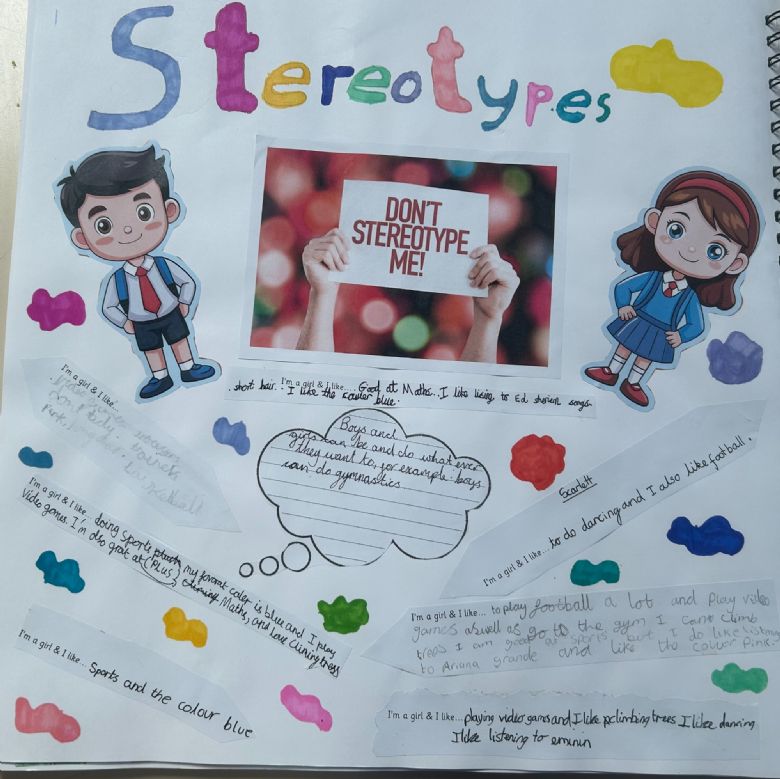 Stereotypes
DON'T
STEREOTYPE
ME!
I'm a girl & I like.... Good at Maths... I like licing to Ed sherien songs.
short hair. I like the couler blue.
Boys and
girls can be and do what ever
they want to, for example: boys
can do gymnastics
I'm a girl & I like...
Pink,
Scarlett
I'm a girl & I like... to do dancing and I also like football.
I'm a girl & I like... doing sports my favorat coler is blue and I play
Video games. I'm also great at (PLUS) Maths, and love climing tress
I'm a girl & I like... to play football a lot and Play video
games aswell as go to the gym I cant climb
trees I am good at sports but I do like listning
to Ariana grande and like the colour Pink.
I'm a girl & I like... Sports and the colour blue
I'm a girl & I like... playing video games and I like climbing trees I like dancing
I like listening to eminin